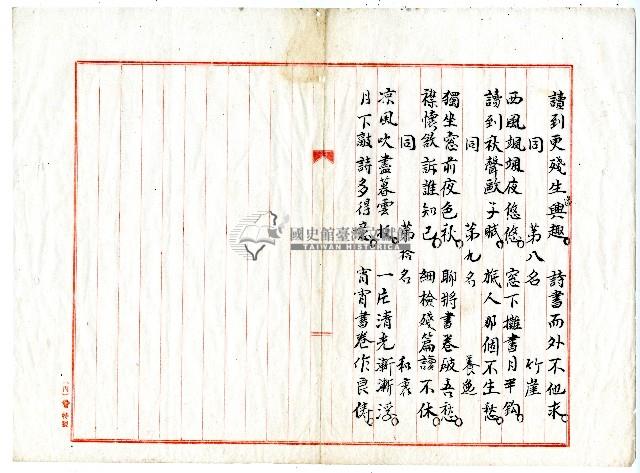 讀到更殘生興趣。詩書而外不他求。
同 第八名 竹崖
西風颯颯夜悠悠。窓下攤書月半鈎。
讀到秋聲歐子賦。旅人那個不生愁。
同 第九名 養逸
獨坐窓前夜色秋。聊將書卷破吾愁。
襟懷欲訴誰知己。細檢殘篇讀不休。
同 第拾名 和衷
凉風吹盡暮雲收。一片清光漸漸浮。
月下敲詩多得意。宵宵書卷作良儔。
國史館臺灣文獻館
TAIWAN HISTORICA